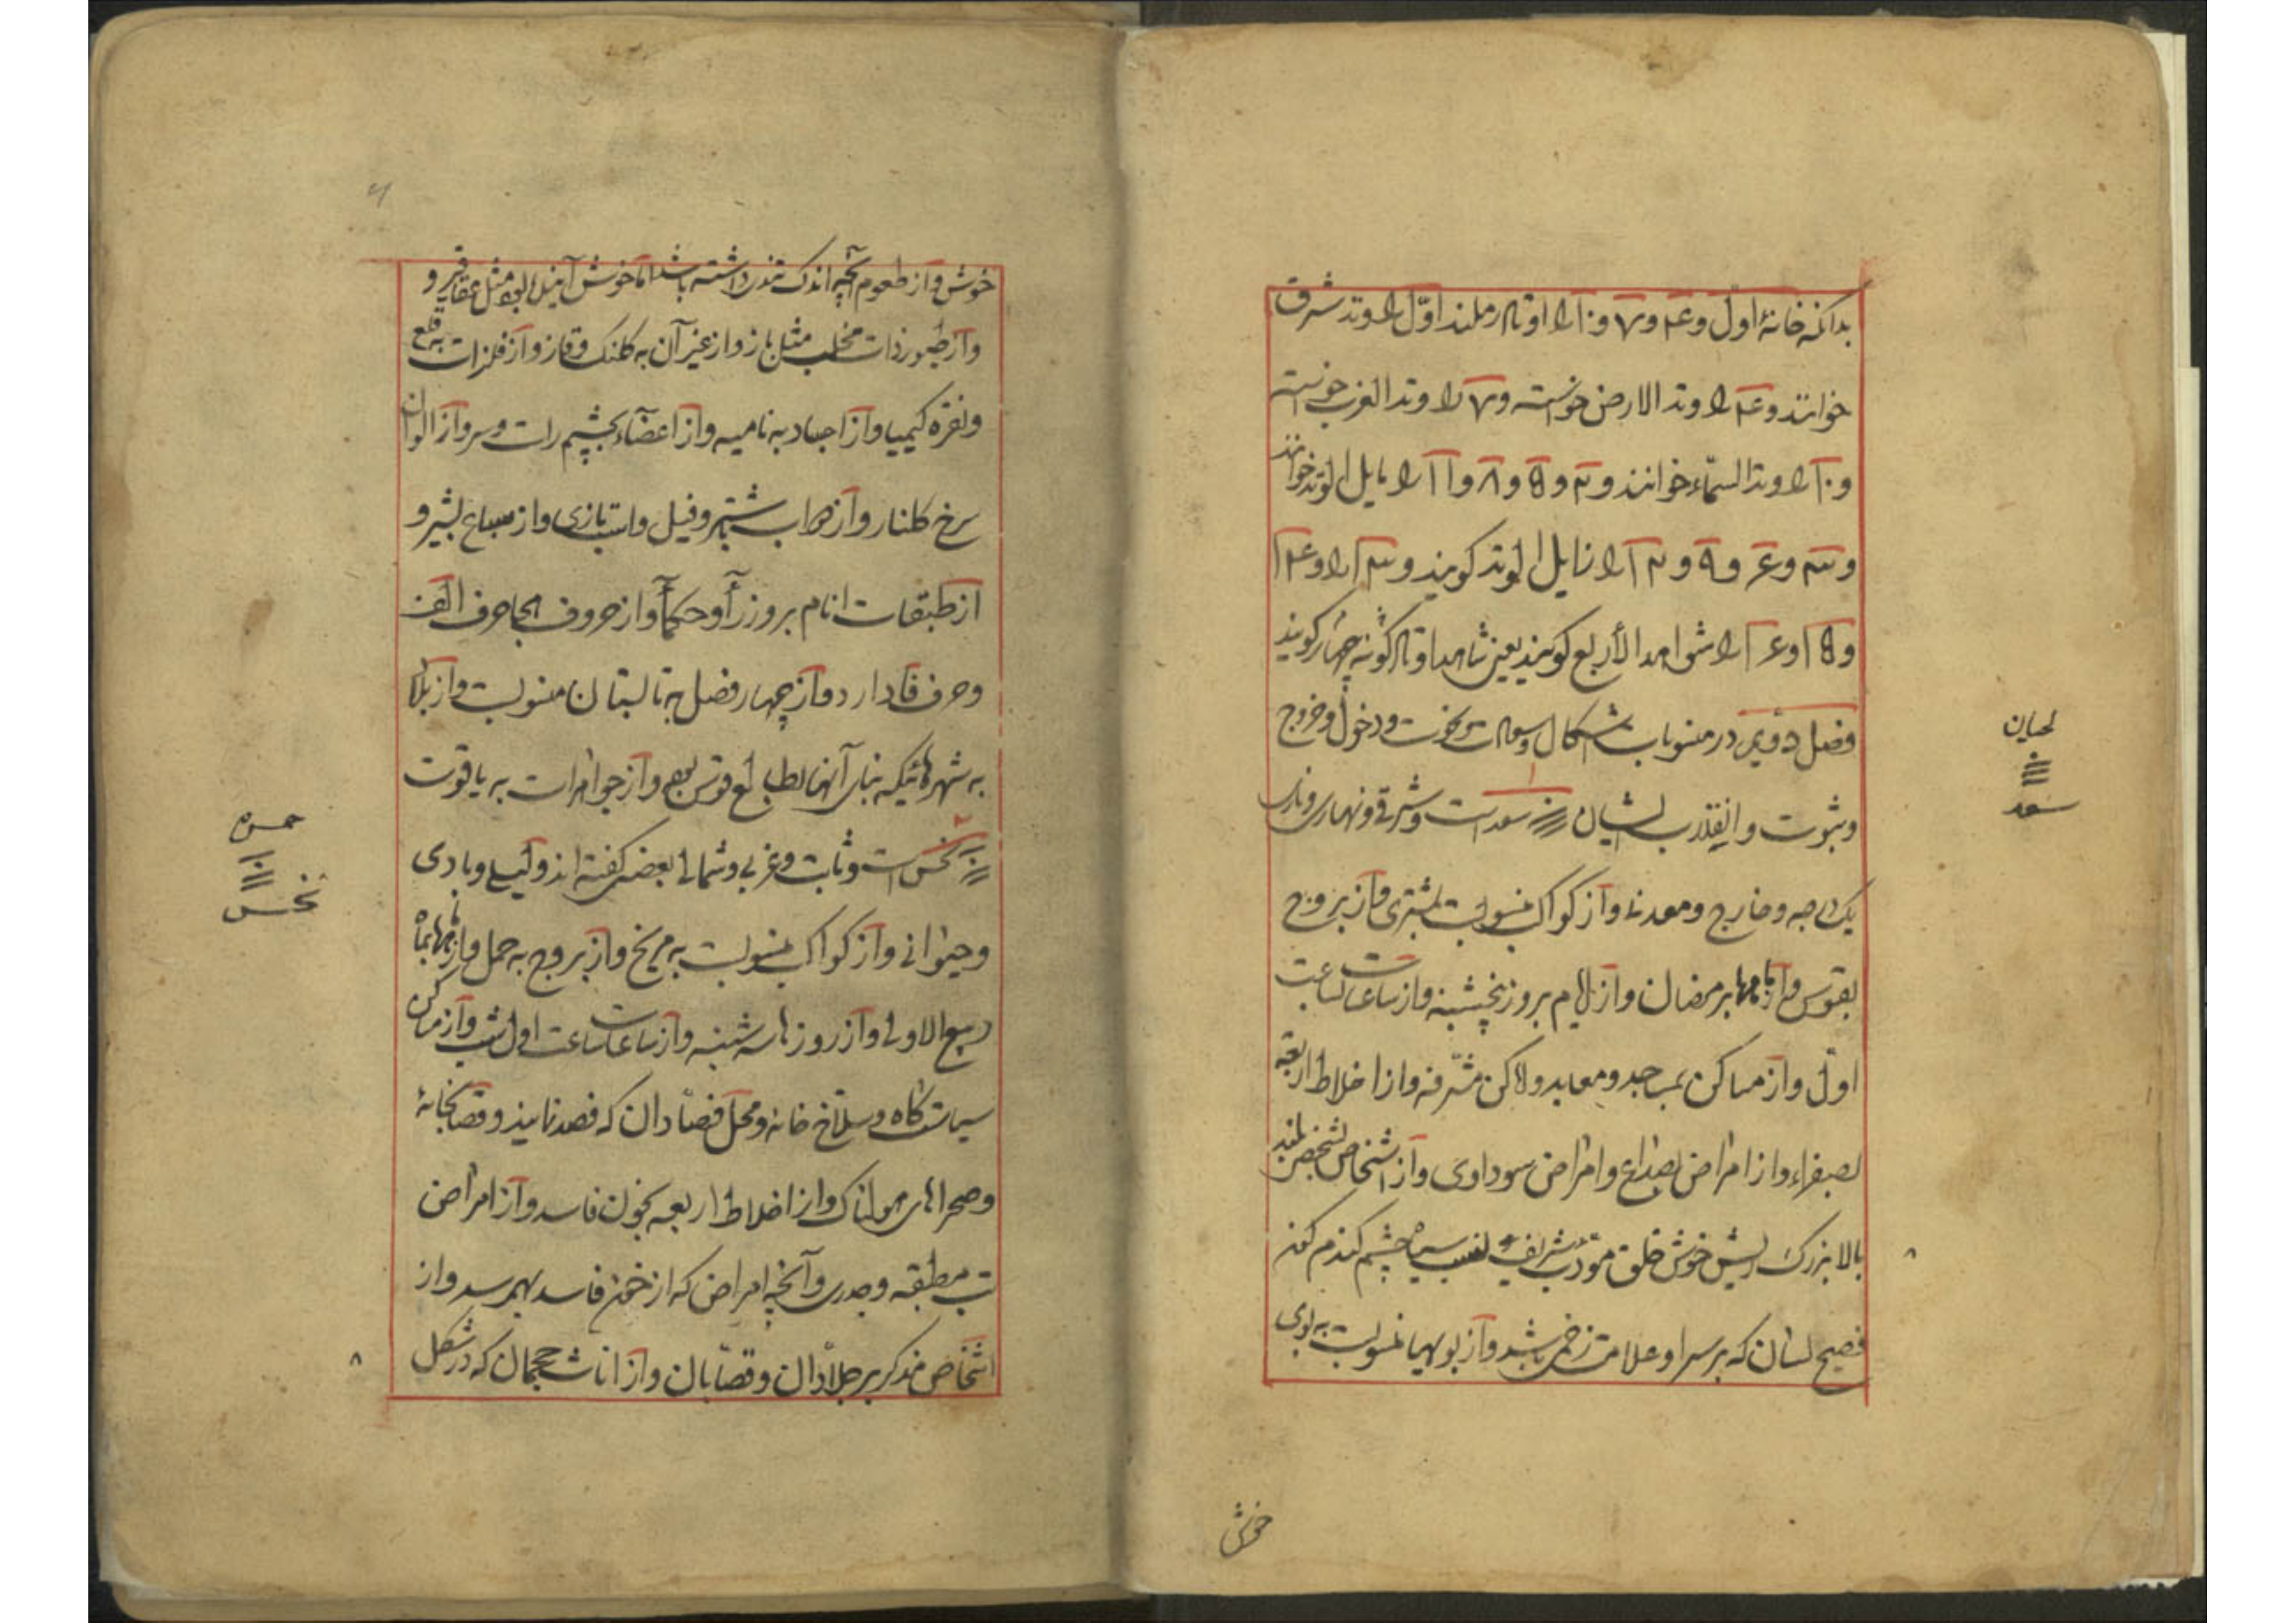 بدانکه خانهٔ اول و ۴ و ۷ و ۱۰ را اوتاد رملند اوّل را وتد شرق
خوانند و ۴ را وتد الارض خوانسته و ۷ را وتد الغرب خوانسته
و ۱۰ را وتد السّماء خوانند و ۲ و ۵ و ۸ و ۱۱ را مایل الوتد خوانند
و ۳ و ۶ و ۹ و ۱۲ را زایل الوتد کویند و ۱۳ را و ۱۴
و ۱۵ و ۱۶ را شواهد الأربع کویند یعنی شاهد اوتاد کونه چهار کویند
فصل دویم در منسوبات اشکال و سعادت و نحوست و دخول و خروج
و ثبوت و انقلاب ایشان سعد است و شرقی و نهاری و ناری
یک درجه و خارج و معدنی و از کواکب منسوبست بمشتری و از بروج
بقوس و از ماهها برمضان و از ایام بروز پنجشنبه و از ساعات بساعت
اوّل و از مساکن بمساجد و معابد و اماکن مشرفه و از اخلاط اربعه
بصفراء و از امراض بصداع و امراض سوداوی و از اشخاص بشخص بلند
بالا بزرک ریش خوش خلق مؤدب شریف نسب سیاه چشم کندم کون
فصیح لسان که بر سر او علامت زخمی باشد و از بویها منسوبست به بوی
لحیان
سعد
خوش
خوش و از طعوم آنچه اندک تندی داشته باشد اما خوش آینده بود مثل عقاقیر و
و از طیور ذات مخلب مثل باز و از غیر آن به کلنک و قاز و از فلزات به قلع
و نقره کیمیا و از اجساد به نامیه و از اعضاء بچشم راست و سر و از الوان
سرخ کلنار و از دواب بشتر و فیل و اسب تازی و از سباع بشیر و
از طبقات انام بروزرآ و حکمآ و از حروف هجا حرف الف
و حرف فا دارد و از چهار فصل به تابستان منسوبست و از بلاد
به شهرهائیکه بنای آنها بطالع قوس بود و از جواهرات به یاقوت
نحس است و ثابت و غربی و شمالی بعضی کفته اند و لیلی و بادی
و حیوانی و از کواکب منسوبست به مریخ و از بروج به حمل و از ماهها بماه
ربیع الاولی و از روزها سه شنبه و از ساعات ساعت اول شب و از مساکن
سیاستکاه و سلاخ خانه و محل فصّادان که فصد نمایند و قصابخانهٔ
و صحراهای هولناک و از اخلاط اربعه بخون فاسد و از امراض
تب مطبقه و جدری و آنچه امراض که از خون فاسد بهم رسد و از
اشخاص مذکر بر جلادان و قصّابان و از اناث حجمان که در شکل
حمره
نحس